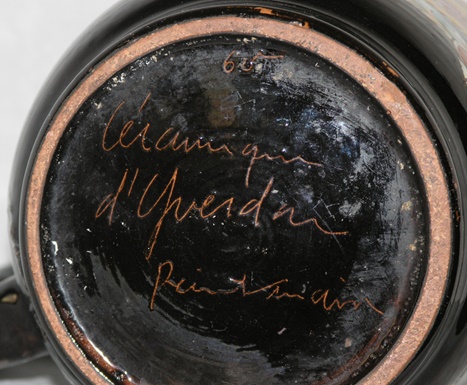 605
Céramique
d'Yverdon
Peint main